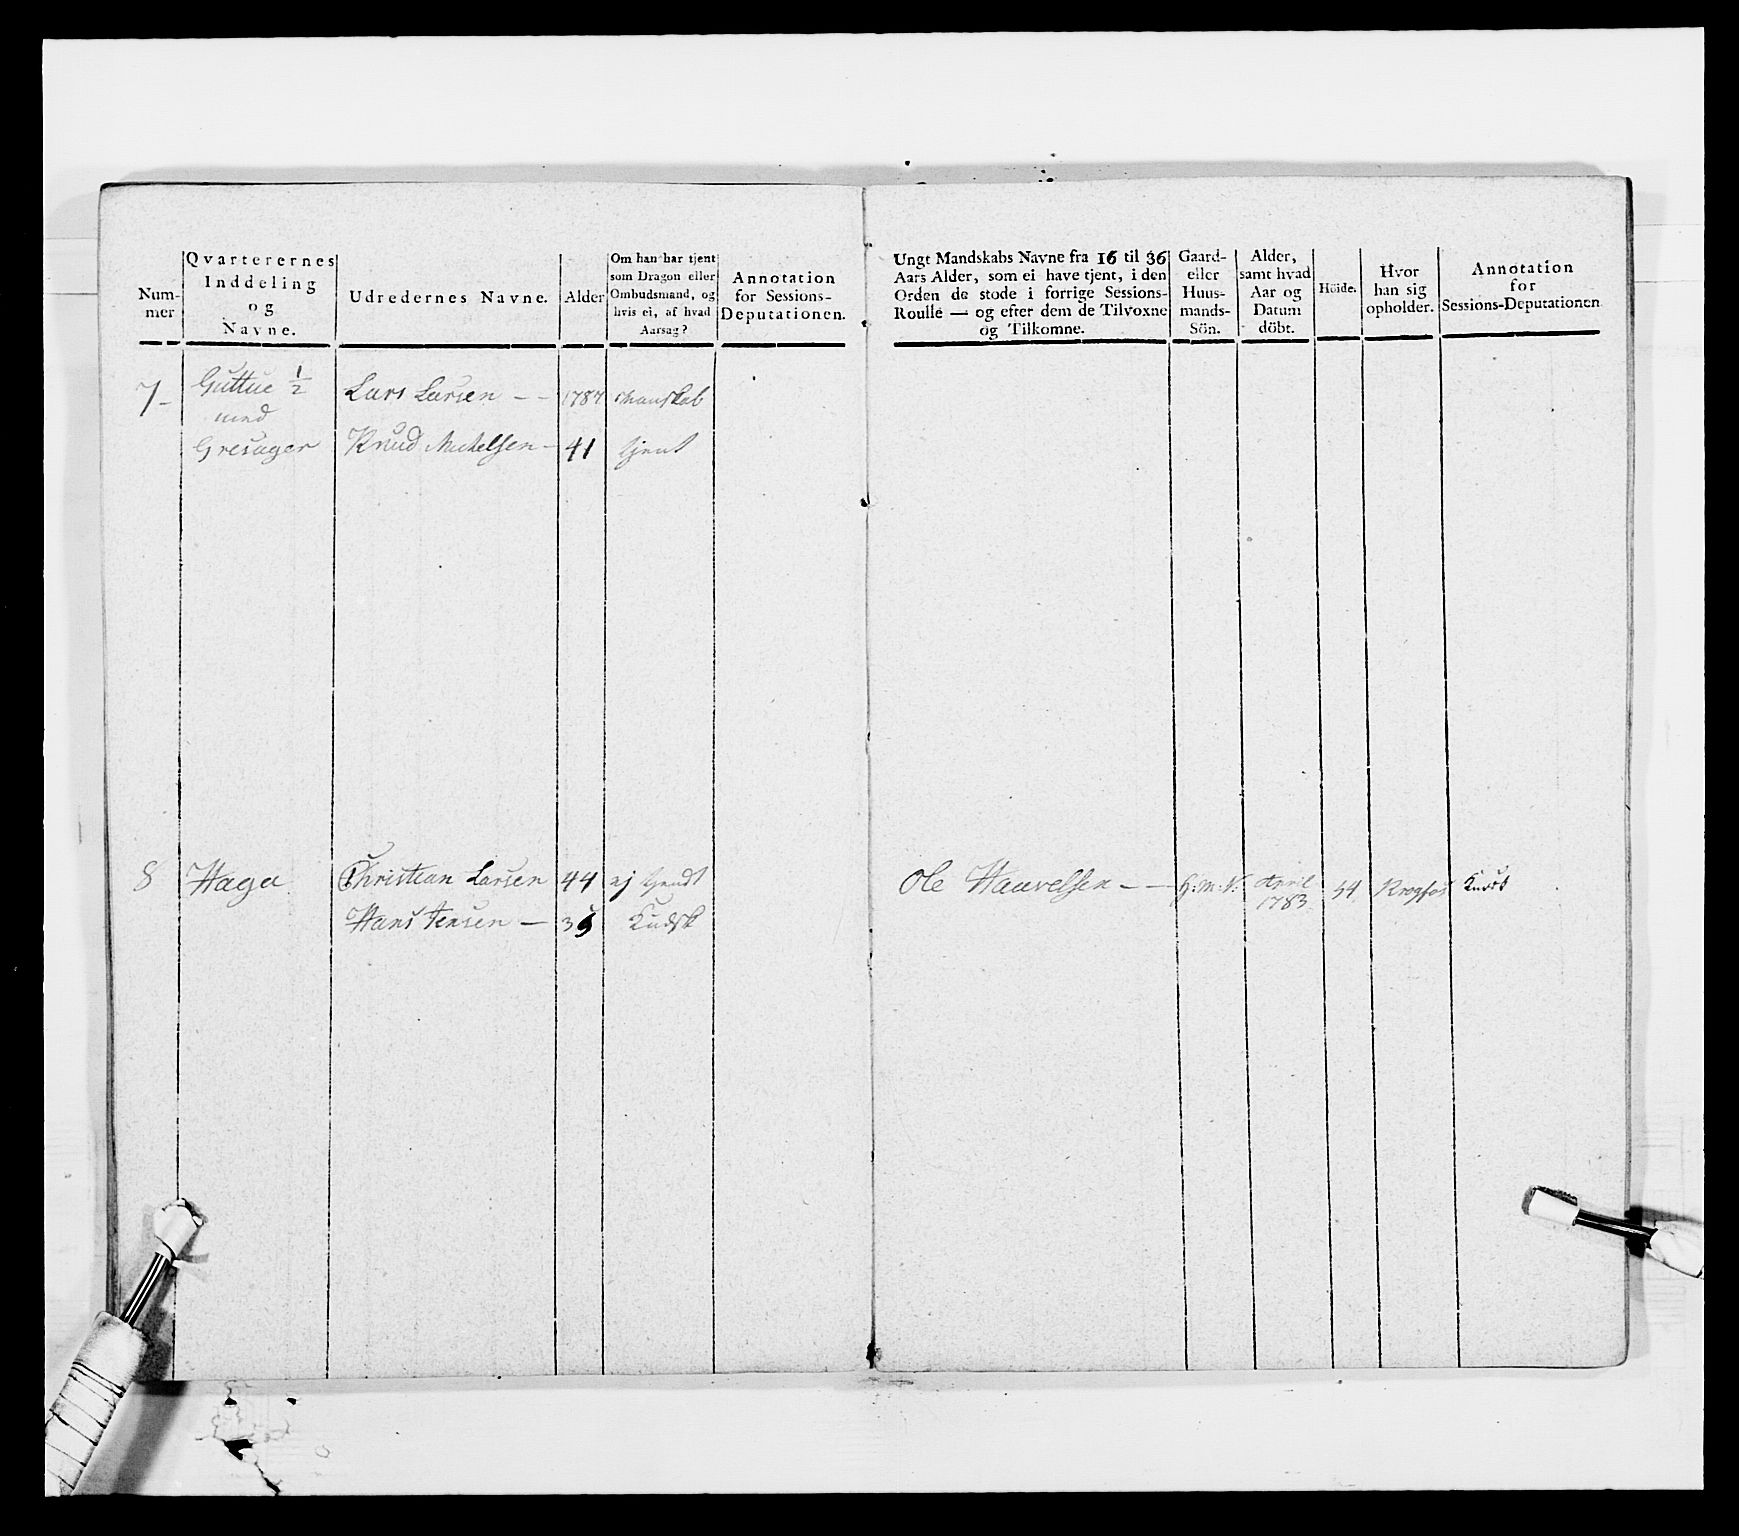 Num-
mer
Qvarterernes
Inddeling
og
Navne.
Udredernes Navne.
Alder
Om han har tjent
som Dragon eller
Ombudsmand, og
hvis ei, af hvad
Aarsag?
Annotation
for Sessions-
Deputationen.
7 Guttue 1/2 Lars Larsen - - 1787
med
Gresager Knud Michelsen - 41 tjent
8 Haga Christian Larsen 44 ej tjendt
Hans Jensen - Kudsk
Ungt Mandskabs Navne fra 16 til 36
Aars Alder, som ei have tjent, i den
Orden de stode i forrige Sessions-
Roulle — og efter dem de Tilvoxne
og Tilkomne.
Gaard-
eller
Huus-
mands-
Sön.
Alder,
samt hvad
Aar og
Datum
döbt.
Höide.
Hvor
han sig
opholder.
Annotation
for
Sessions-Deputationen.
Ole Haavelsen - - April 54 Krogfos Kudsk
1783